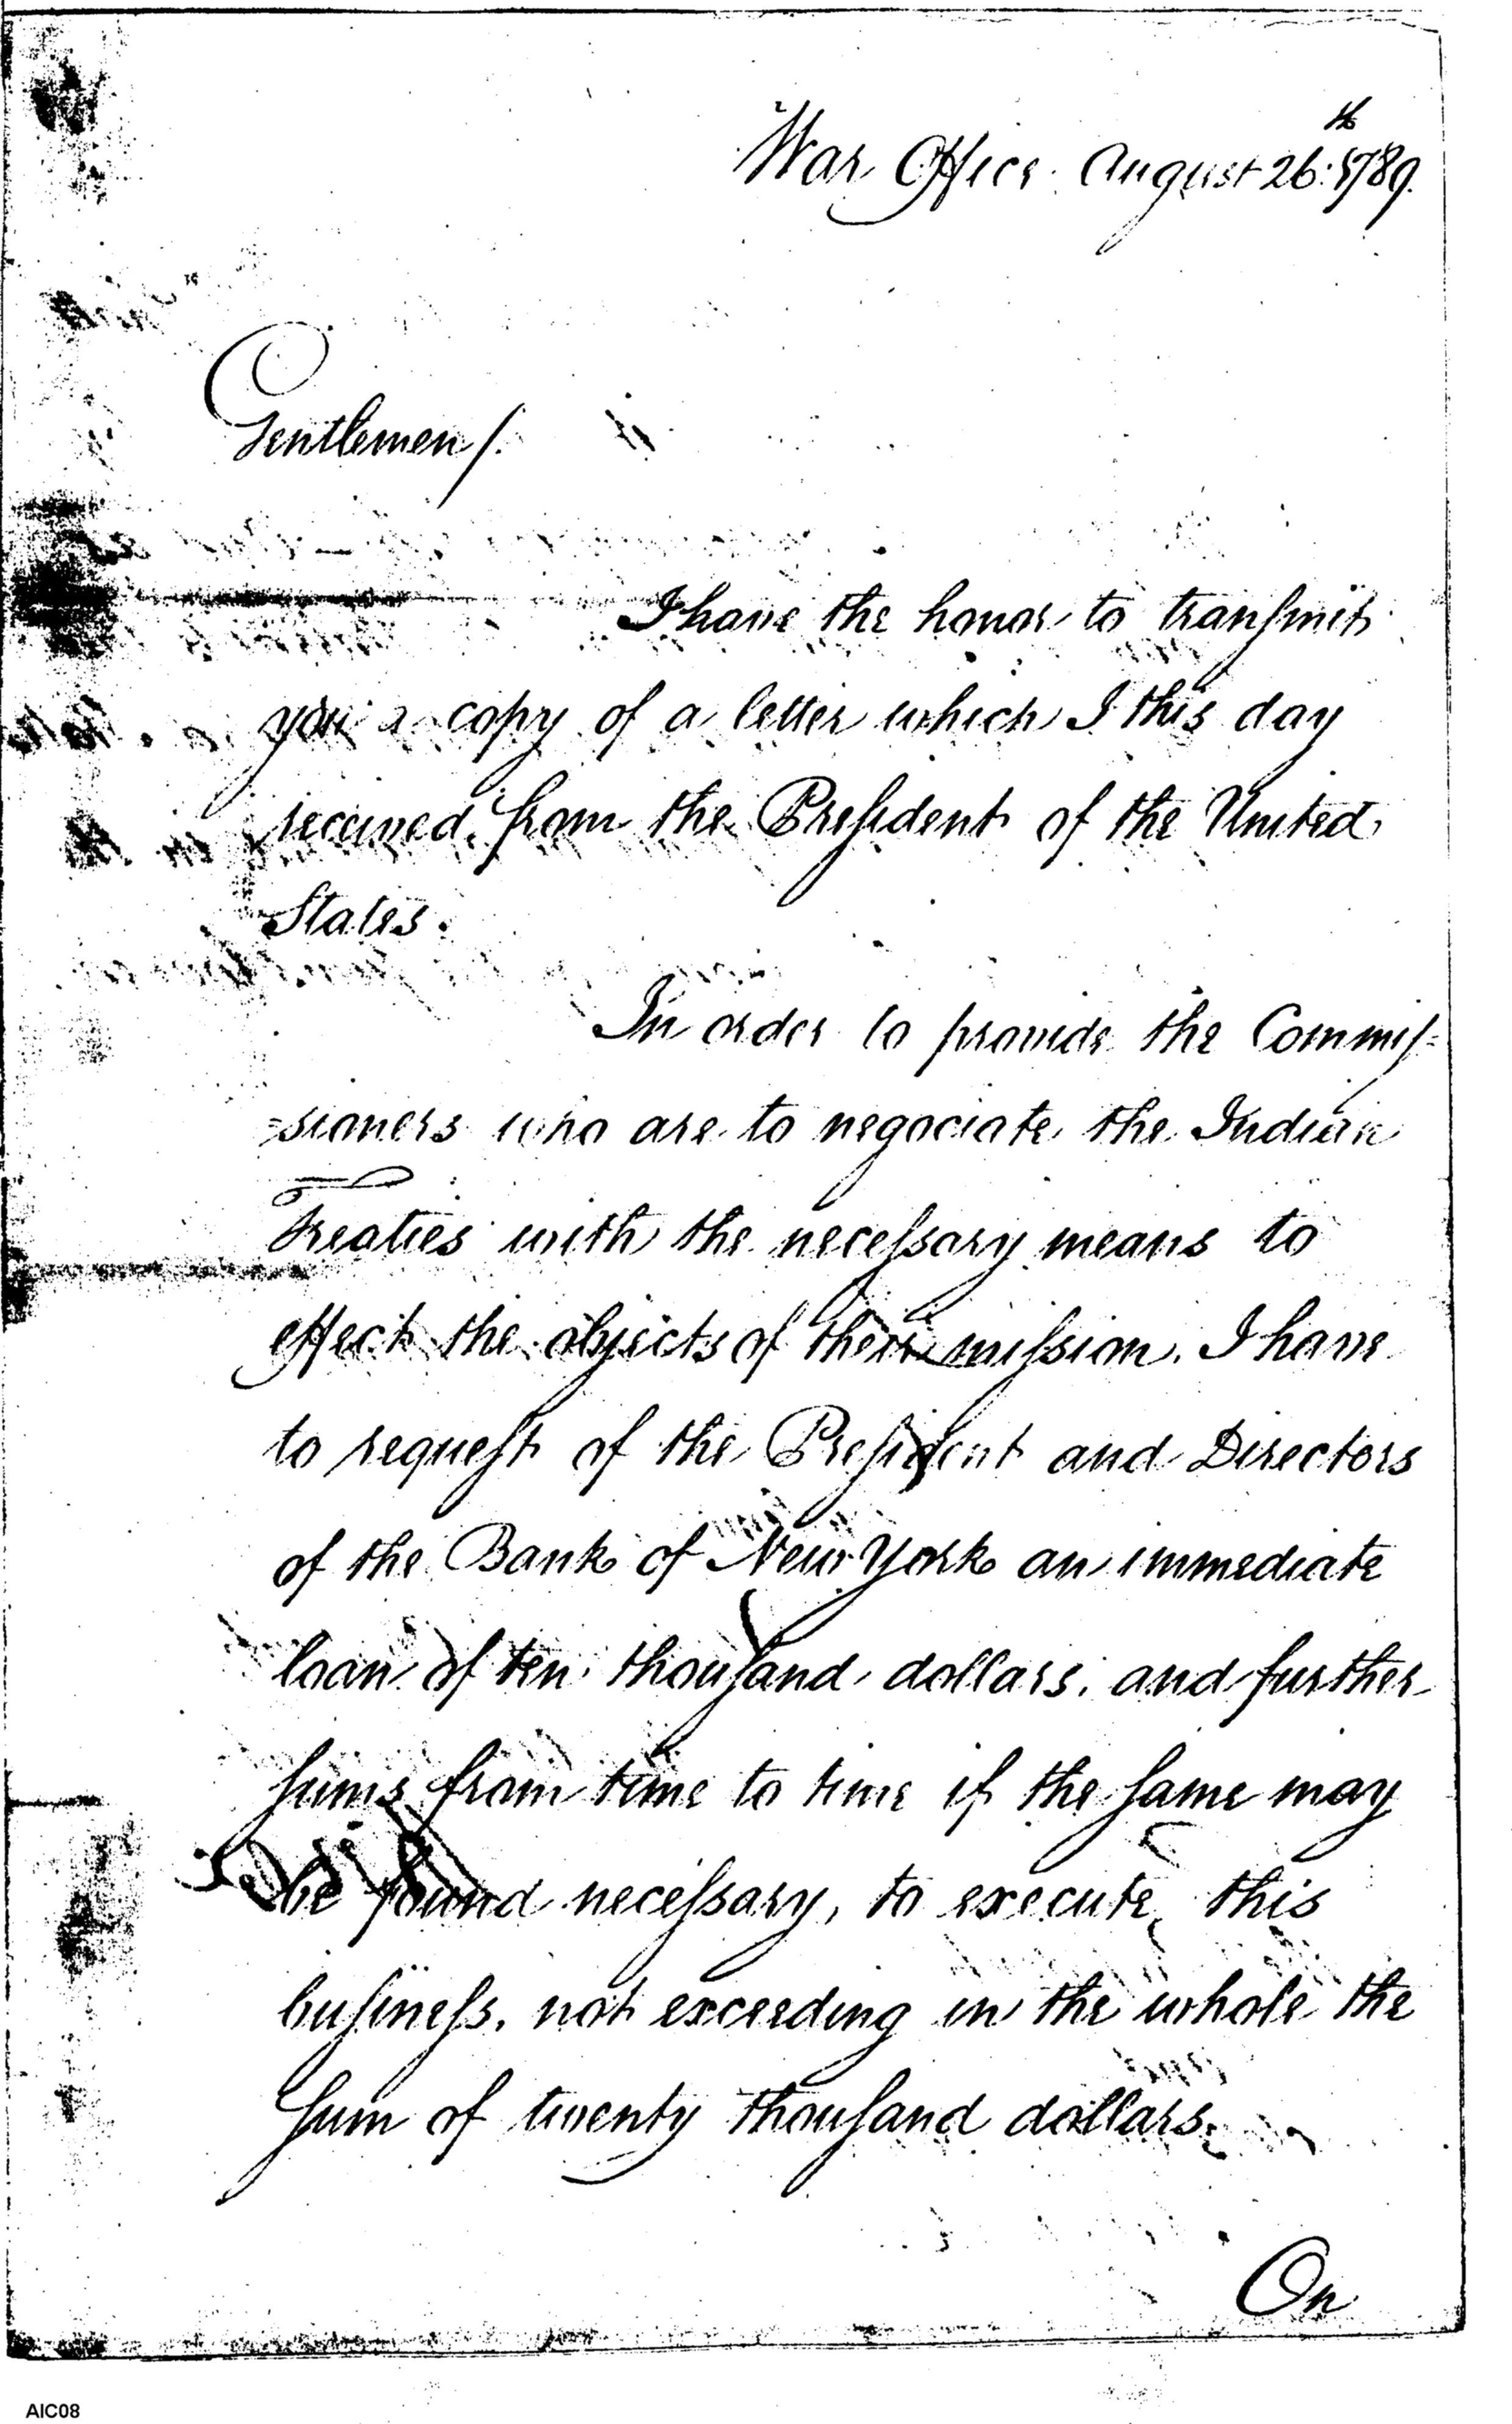 War Office August 26th 1789.
Gentlemen/.
I have the honor to transmit
you a copy of a letter which I this day
received from the President of the United
States.
In order to provide the Commis=
=sioners who are to negociate the Indian
Treaties with the necessary means to
effect the objects of their mission. I have
to request of the President and Directors
of the Bank of New York an immediate
loan of ten thousand dollars, and further
sums from time to time if the same may
be found necessary, to execute this
business, not exceeding in the whole the
sum of twenty thousand dollars.
On
AIC08